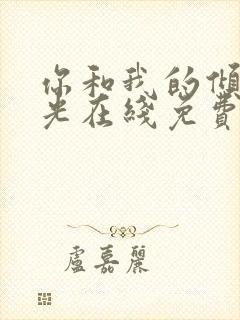 你和我的傾
光在綫免費
盧嘉麗